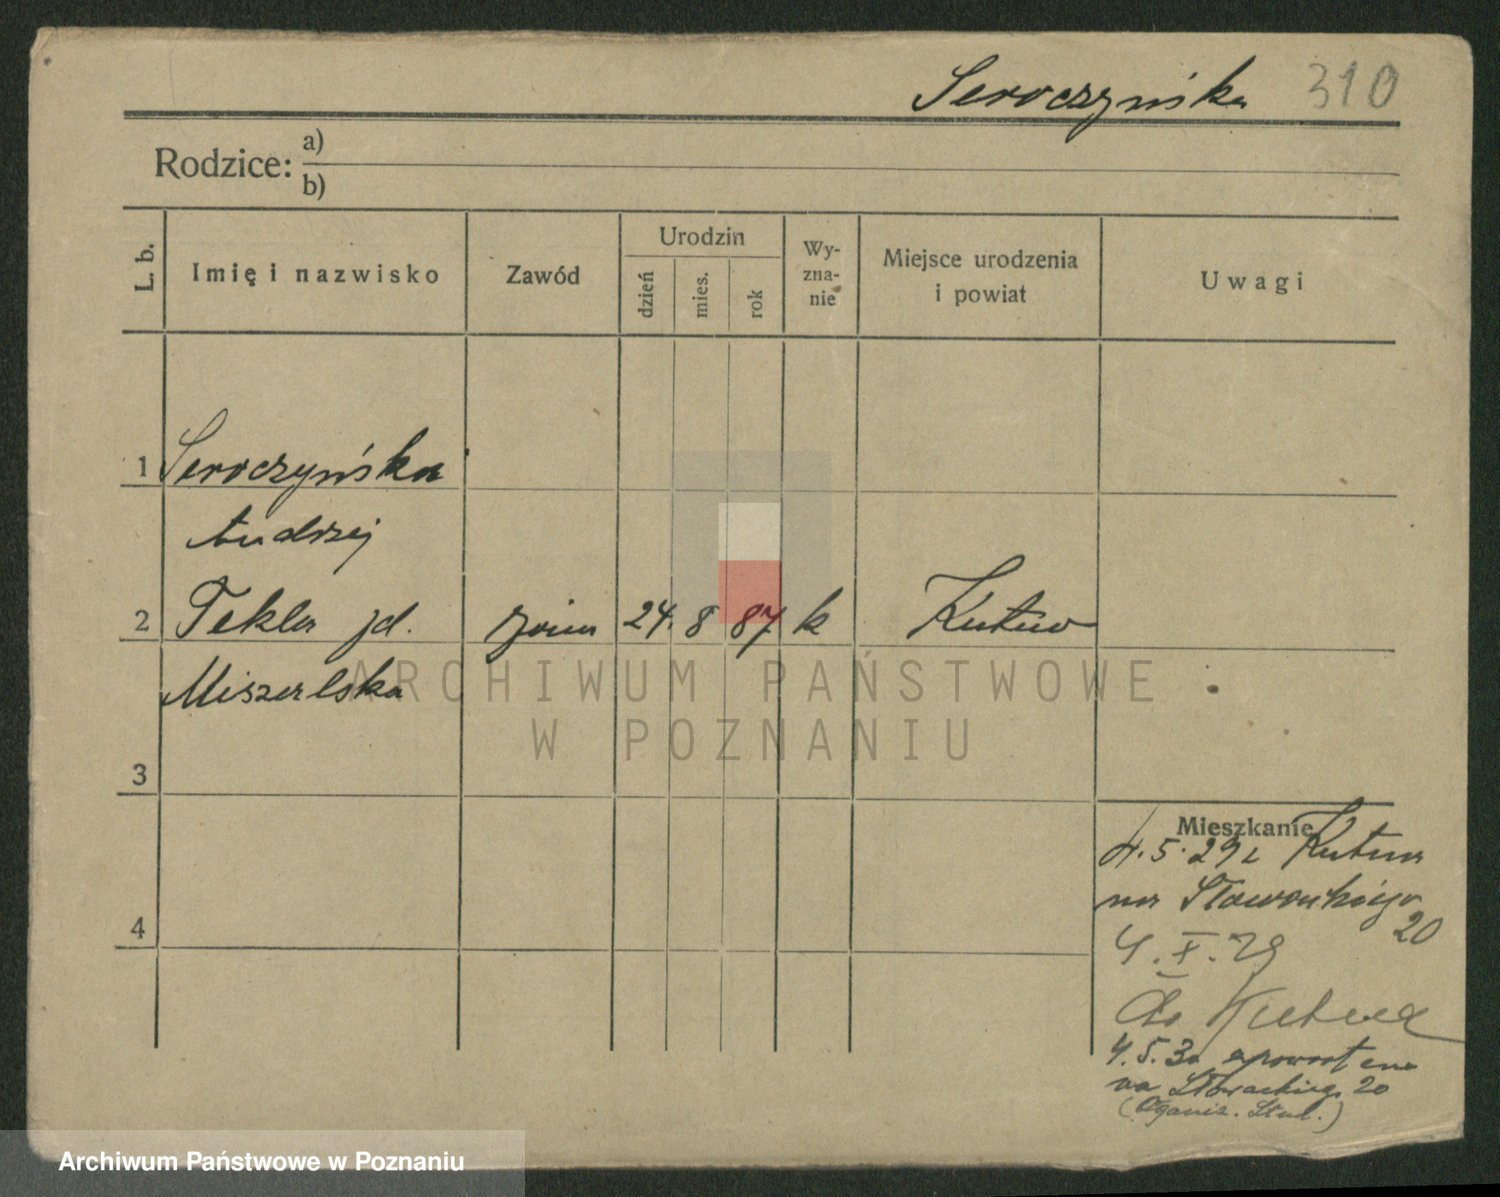 Seroczyńska 310
Rodzice: a)
b)
L. b. Imię i nazwisko Zawód Urodzin dzień mies. rok Wy-zna-nie Miejsce urodzenia i powiat Uwagi
1 Seroczyńska
Andrzej
2 Tekla jd. żona 24. 8 87 k Kutno
Miszerlska
ARCHIWUM PAŃSTWOWE
W POZNANIU
3
Mieszkanie
4.5.29 z Kutna
na Słowackiego
20
4
4.X.29
do Kutna
4.5.30 z powrotem
na Słowackiego 20
(Organis. Stud.)
Archiwum Państwowe w Poznaniu